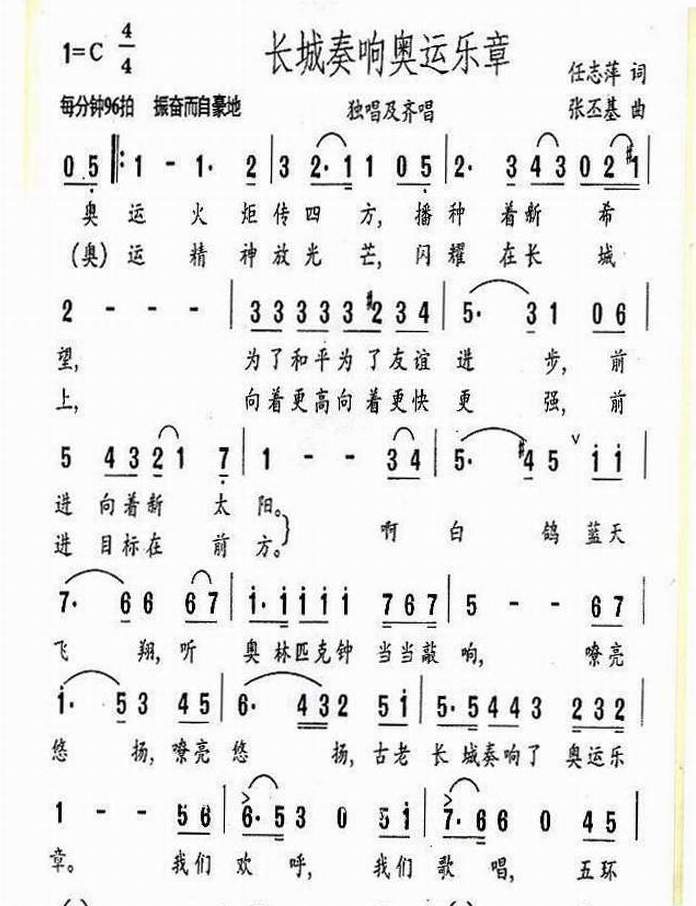 长城奏响奥运乐章
1=C 4/4
任志萍 词
每分钟96拍 振奋而自豪地
独唱及齐唱
张丕基 曲
0 5 ‖: 1 - 1· 2 | 3 2· 1 1 0 5 | 2· 3 4 3 0 2 #1 |
奥 运 火 炬 传 四 方, 播 种 着 新 希
(奥) 运 精 神 放 光 芒, 闪 耀 在 长 城
2 - - - | 3 3 3 3 3 #2 3 4 | 5· 3 1 0 6 |
望, 为了和平为了友谊 进 步, 前
上, 向着更高向着更快 更 强, 前
5 4 3 2 1 7 | 1 - - 3 4 | 5· #4 5 ∨ i i |
进 向着新 太 阳。
进 目标在 前 方。 } 啊 白 鸽 蓝天
7· 6 6 6 7 | i· i i i i i 7 6 7 | 5 - - 6 7 |
飞 翔, 听 奥 林匹克钟 当当敲 响, 嘹亮
i· 5 3 4 5 | 6· 4 3 2 5 i | 5· 5 4 4 3 2 3 2 |
悠 扬, 嘹亮 悠 扬, 古老 长 城奏响了 奥运乐
1 - - 5 6 | 6· 5 3 0 5 i | 7· 6 6 0 4 5 |
章。 我们 欢 呼, 我们 歌 唱, 五环